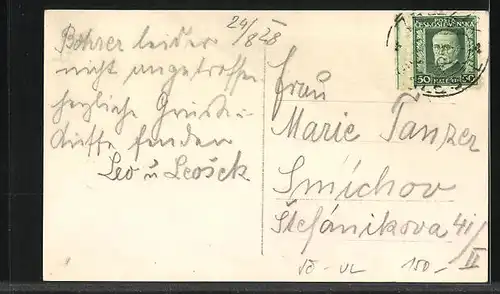 24/8 28
Bohrer leider
nicht angetroffen
herzliche Grüsse
senden
Leo u Leošek
Frau
Marie Tanzer
Smíchov
Štefánikova 41/II
ČESKOSLOVENSKO
50 HALÉŘŮ 50
VL 150-